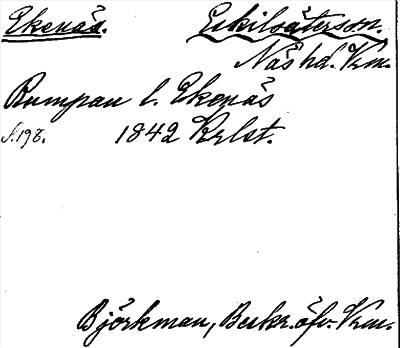 Ekenäs. Eskilsäters sn.
Näs hd. Vrm.
Rumpan l. Ekenäs
S. 198. 1842 Krlst.
Björkman, Beskr. öfv. Vrm.